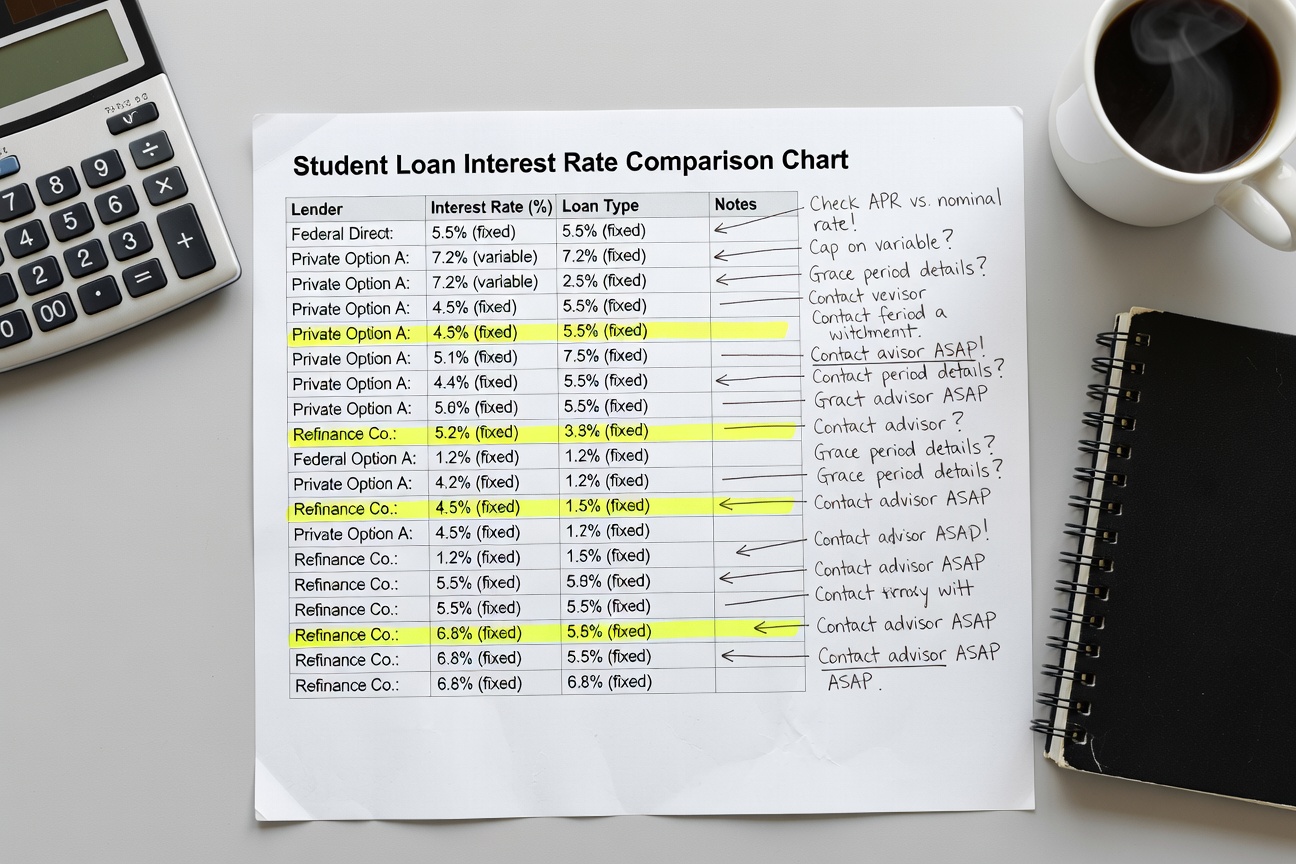 Student Loan Interest Rate Comparison Chart
Lender Interest Rate (%) Loan Type Notes
Federal Direct: 5.5% (fixed) 5.5% (fixed)
Private Option A: 7.2% (variable) 7.2% (fixed)
Private Option A: 7.2% (variable) 2.5% (fixed)
Private Option A: 4.5% (fixed) 5.5% (fixed)
Private Option A: 4.5% (fixed) 5.5% (fixed)
Private Option A: 5.1% (fixed) 7.5% (fixed)
Private Option A: 4.4% (fixed) 5.5% (fixed)
Private Option A: (fixed) 5.5% (fixed)
Refinance Co.: 5.2% (fixed) (fixed)
Federal Option A: 1.2% (fixed) 1.2% (fixed)
Private Option A: 4.2% (fixed) 1.2% (fixed)
Refinance Co.: 4.5% (fixed) 1.5% (fixed)
Private Option A: 4.5% (fixed) 1.2% (fixed)
Refinance Co.: 1.2% (fixed) 1.5% (fixed)
Refinance Co.: 5.5% (fixed) (fixed)
Refinance Co.: 5.5% (fixed) 5.5% (fixed)
Refinance Co.: 6.8% (fixed) (fixed)
Refinance Co.: 6.8% (fixed) 5.5% (fixed)
Refinance Co.: 6.8% (fixed) 6.8% (fixed)
Check APR vs. nominal
rate!
Cap on variable?
Grace period details?
Contact vevisor
Contact feriod a
Contact avisor ASAP!
Contact period details?
Gract advisor ASAP
Contact advisor ?
Grace period details?
Grace period details?
Contact advisor ASAP
Contact advisor ASAD!
Contact advisor ASAP
Contact witt
Contact advisor ASAP
Contact advisor ASAP
ASAP.
7 8 9 ÷
4 5 6 ×
2 2 3 +
0 00 · =